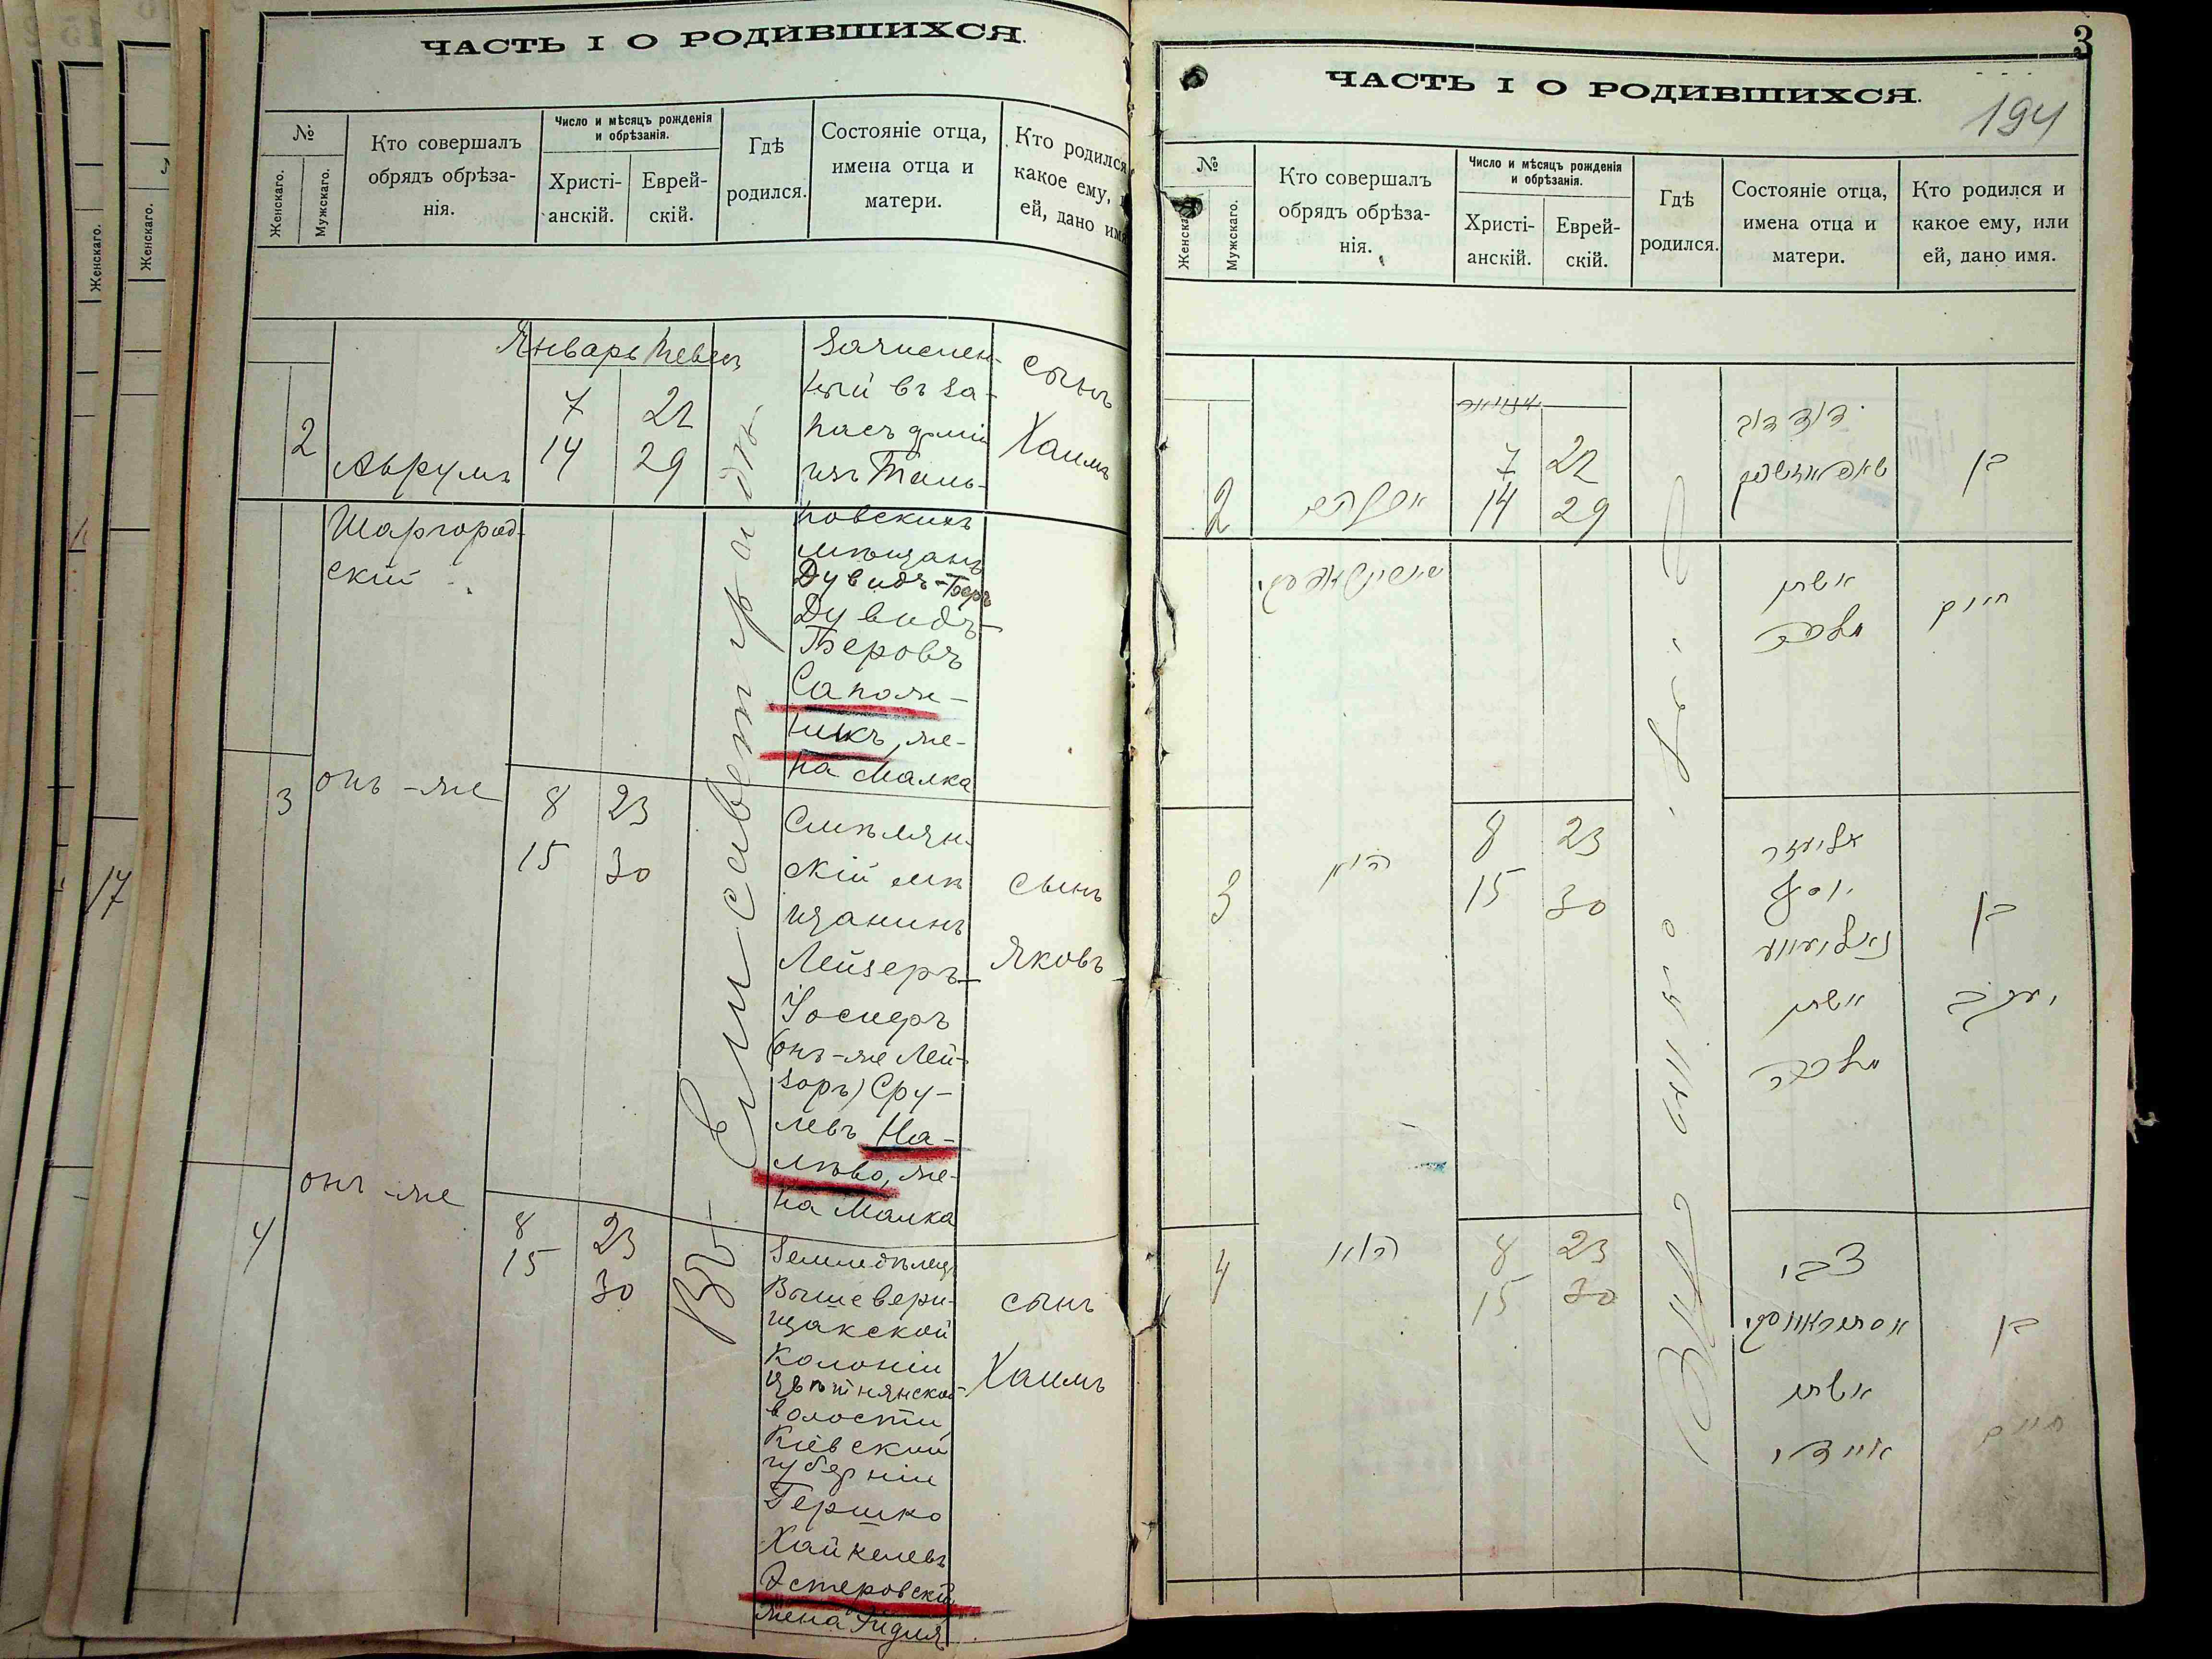 ЧАСТЬ I О РОДИВШИХСЯ.
№
Женскаго.
Мужскаго.
Кто совершалъ
обрядъ обрѣза-
нія.
Число и мѣсяцъ рожденія
и обрѣзанія.
Христі-
анскій.
Еврей-
скій.
Гдѣ
родился.
Состояніе отца,
имена отца и
матери.
Кто родился
какое ему,
ей, дано имя
Январь Тевес
2
Аврумъ
Шаргород-
скій
7 22
14 29
Въ Елисаветградѣ
Зачислен-
ный въ за-
пасъ арміи
изъ Таль-
новскихъ
мѣщанъ
Дувидъ-Беръ
Дувидъ-
Беровъ
Сапож-
никъ, же-
на Малка
сынъ
Хаимъ
3
онъ-же
8 23
15 30
Смѣлян-
скій мѣ
щанинъ
Лейзеръ-
Іосифъ
(онъ-же Лей-
зоръ) Сру-
левъ На-
лѣво, же-
на Малка
сынъ
Яковъ
4
онъ-же
8 23
15 30
Земледѣлец
Вышевери-
щакской
Колоніи
Цвѣтнянской
волости
Кіевской
губерніи
Гершко
Хайкелевъ
Эстеровскій
жена Эидля
сынъ
Хаимъ
17
3
194
ЧАСТЬ I О РОДИВШИХСЯ.
№
Женскаго
Мужскаго.
Кто совершалъ
обрядъ обрѣза-
нія.
Число и мѣсяцъ рожденія
и обрѣзанія.
Христі-
анскій.
Еврей-
скій.
Гдѣ
родился.
Состояніе отца,
имена отца и
матери.
Кто родился и
какое ему, или
ей, дано имя.
2
אברהם
7 22
14 29
דוד דוב
אשתו
מלכה
בן
חיים
3
הנ״ל
8 23
15 30
אליעזר
יוסף
אשתו
מלכה
בן
יעקב
4
8 23
15 30
צבי
אשתו
בן
חיים